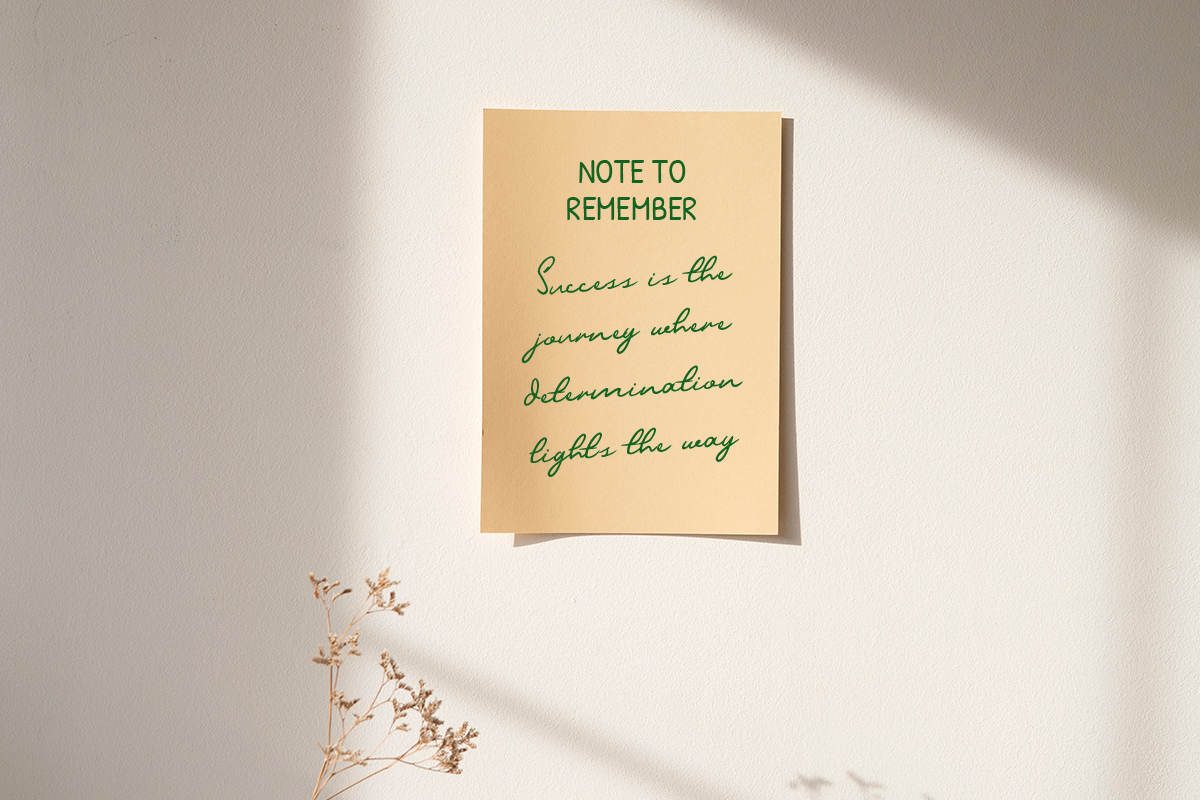 NOTE TO
REMEMBER
Success is the
journey where
determination
lights the way